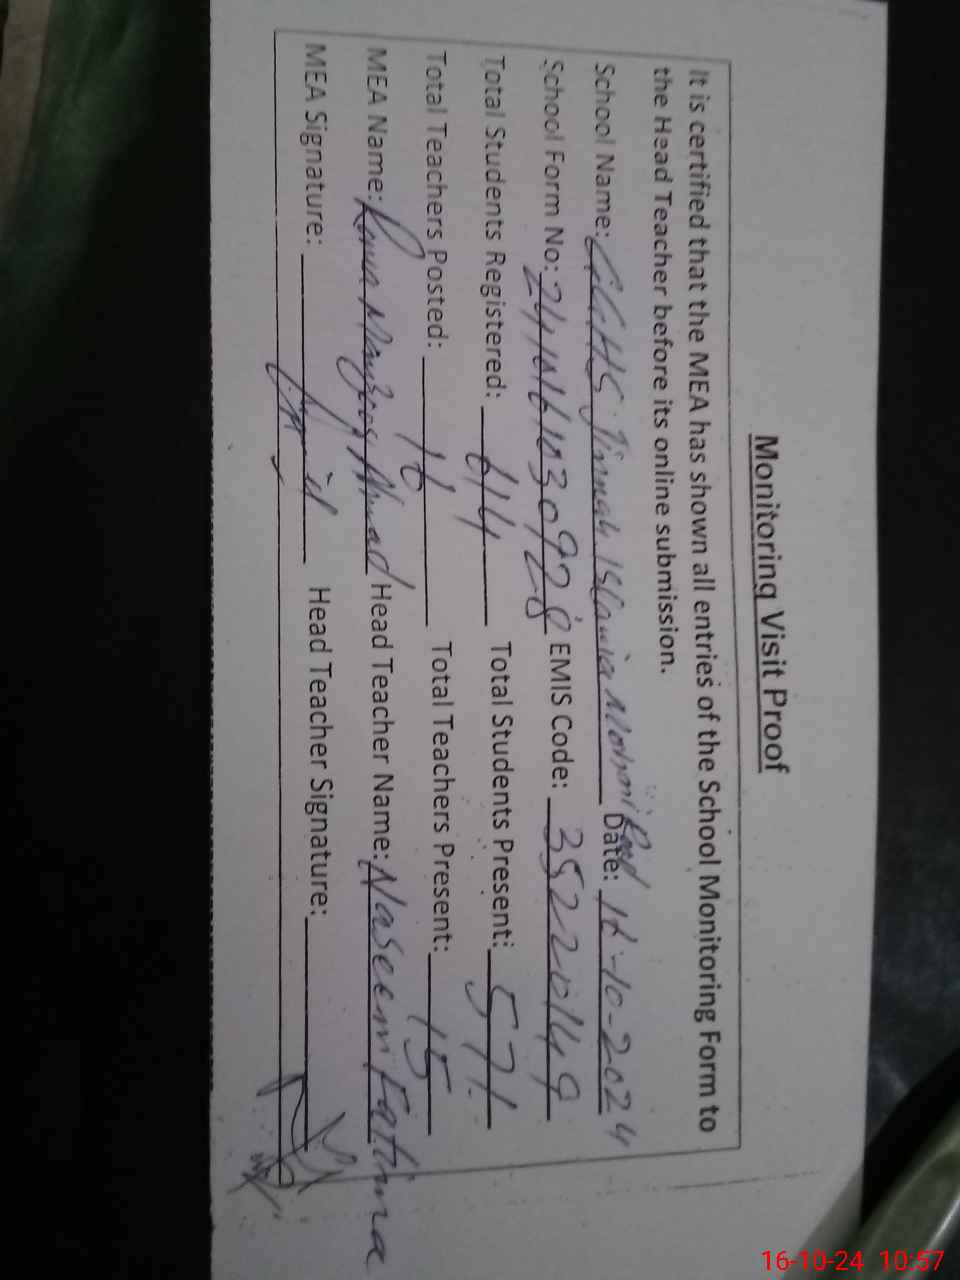 Monitoring Visit Proof
It is certified that the MEA has shown all entries of the School Monitoring Form to
the Head Teacher before its online submission.
School Name: GGHS Jinnah Islamia Road Date: 16-10-2024
School Form No: EMIS Code: 35220149
Total Students Registered: 614 Total Students Present: 571
Total Teachers Posted: 16 Total Teachers Present: 15
MEA Name: Ahmad Head Teacher Name: Naseem Fatima
MEA Signature: Head Teacher Signature:
16-10-24 10:57